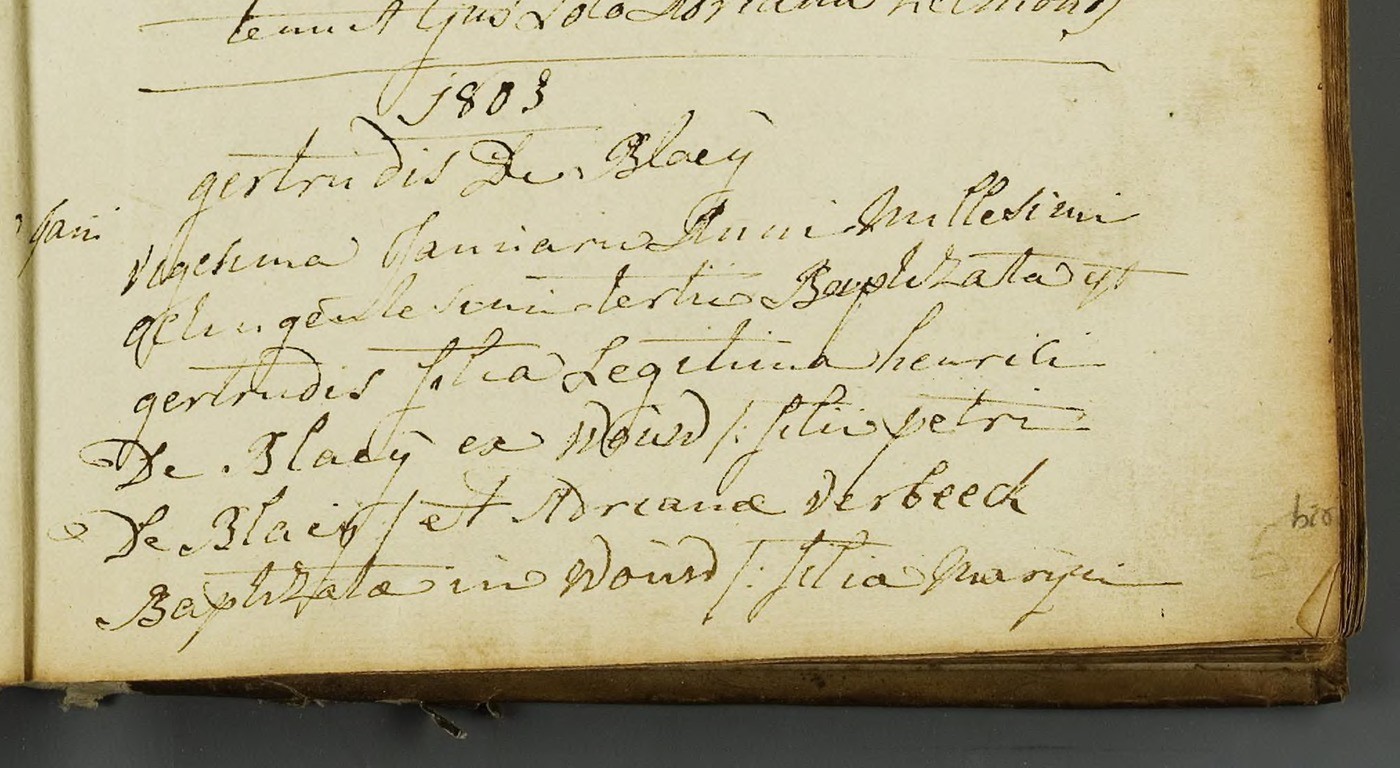 tenuit Ejus Loco Adriana helmons
1803
gertrudis De Blaeÿ
Jani
vigesima Januarii Anni Millesimi
octingentesimi tertii Baptizata est
gertrudis filia Legitima henrici
De Blaeÿ ex Woúw /: filii petri
De Blaeÿ / et Adrianæ verbeeck
Baptizatæ in Woúw /: filia Marÿni